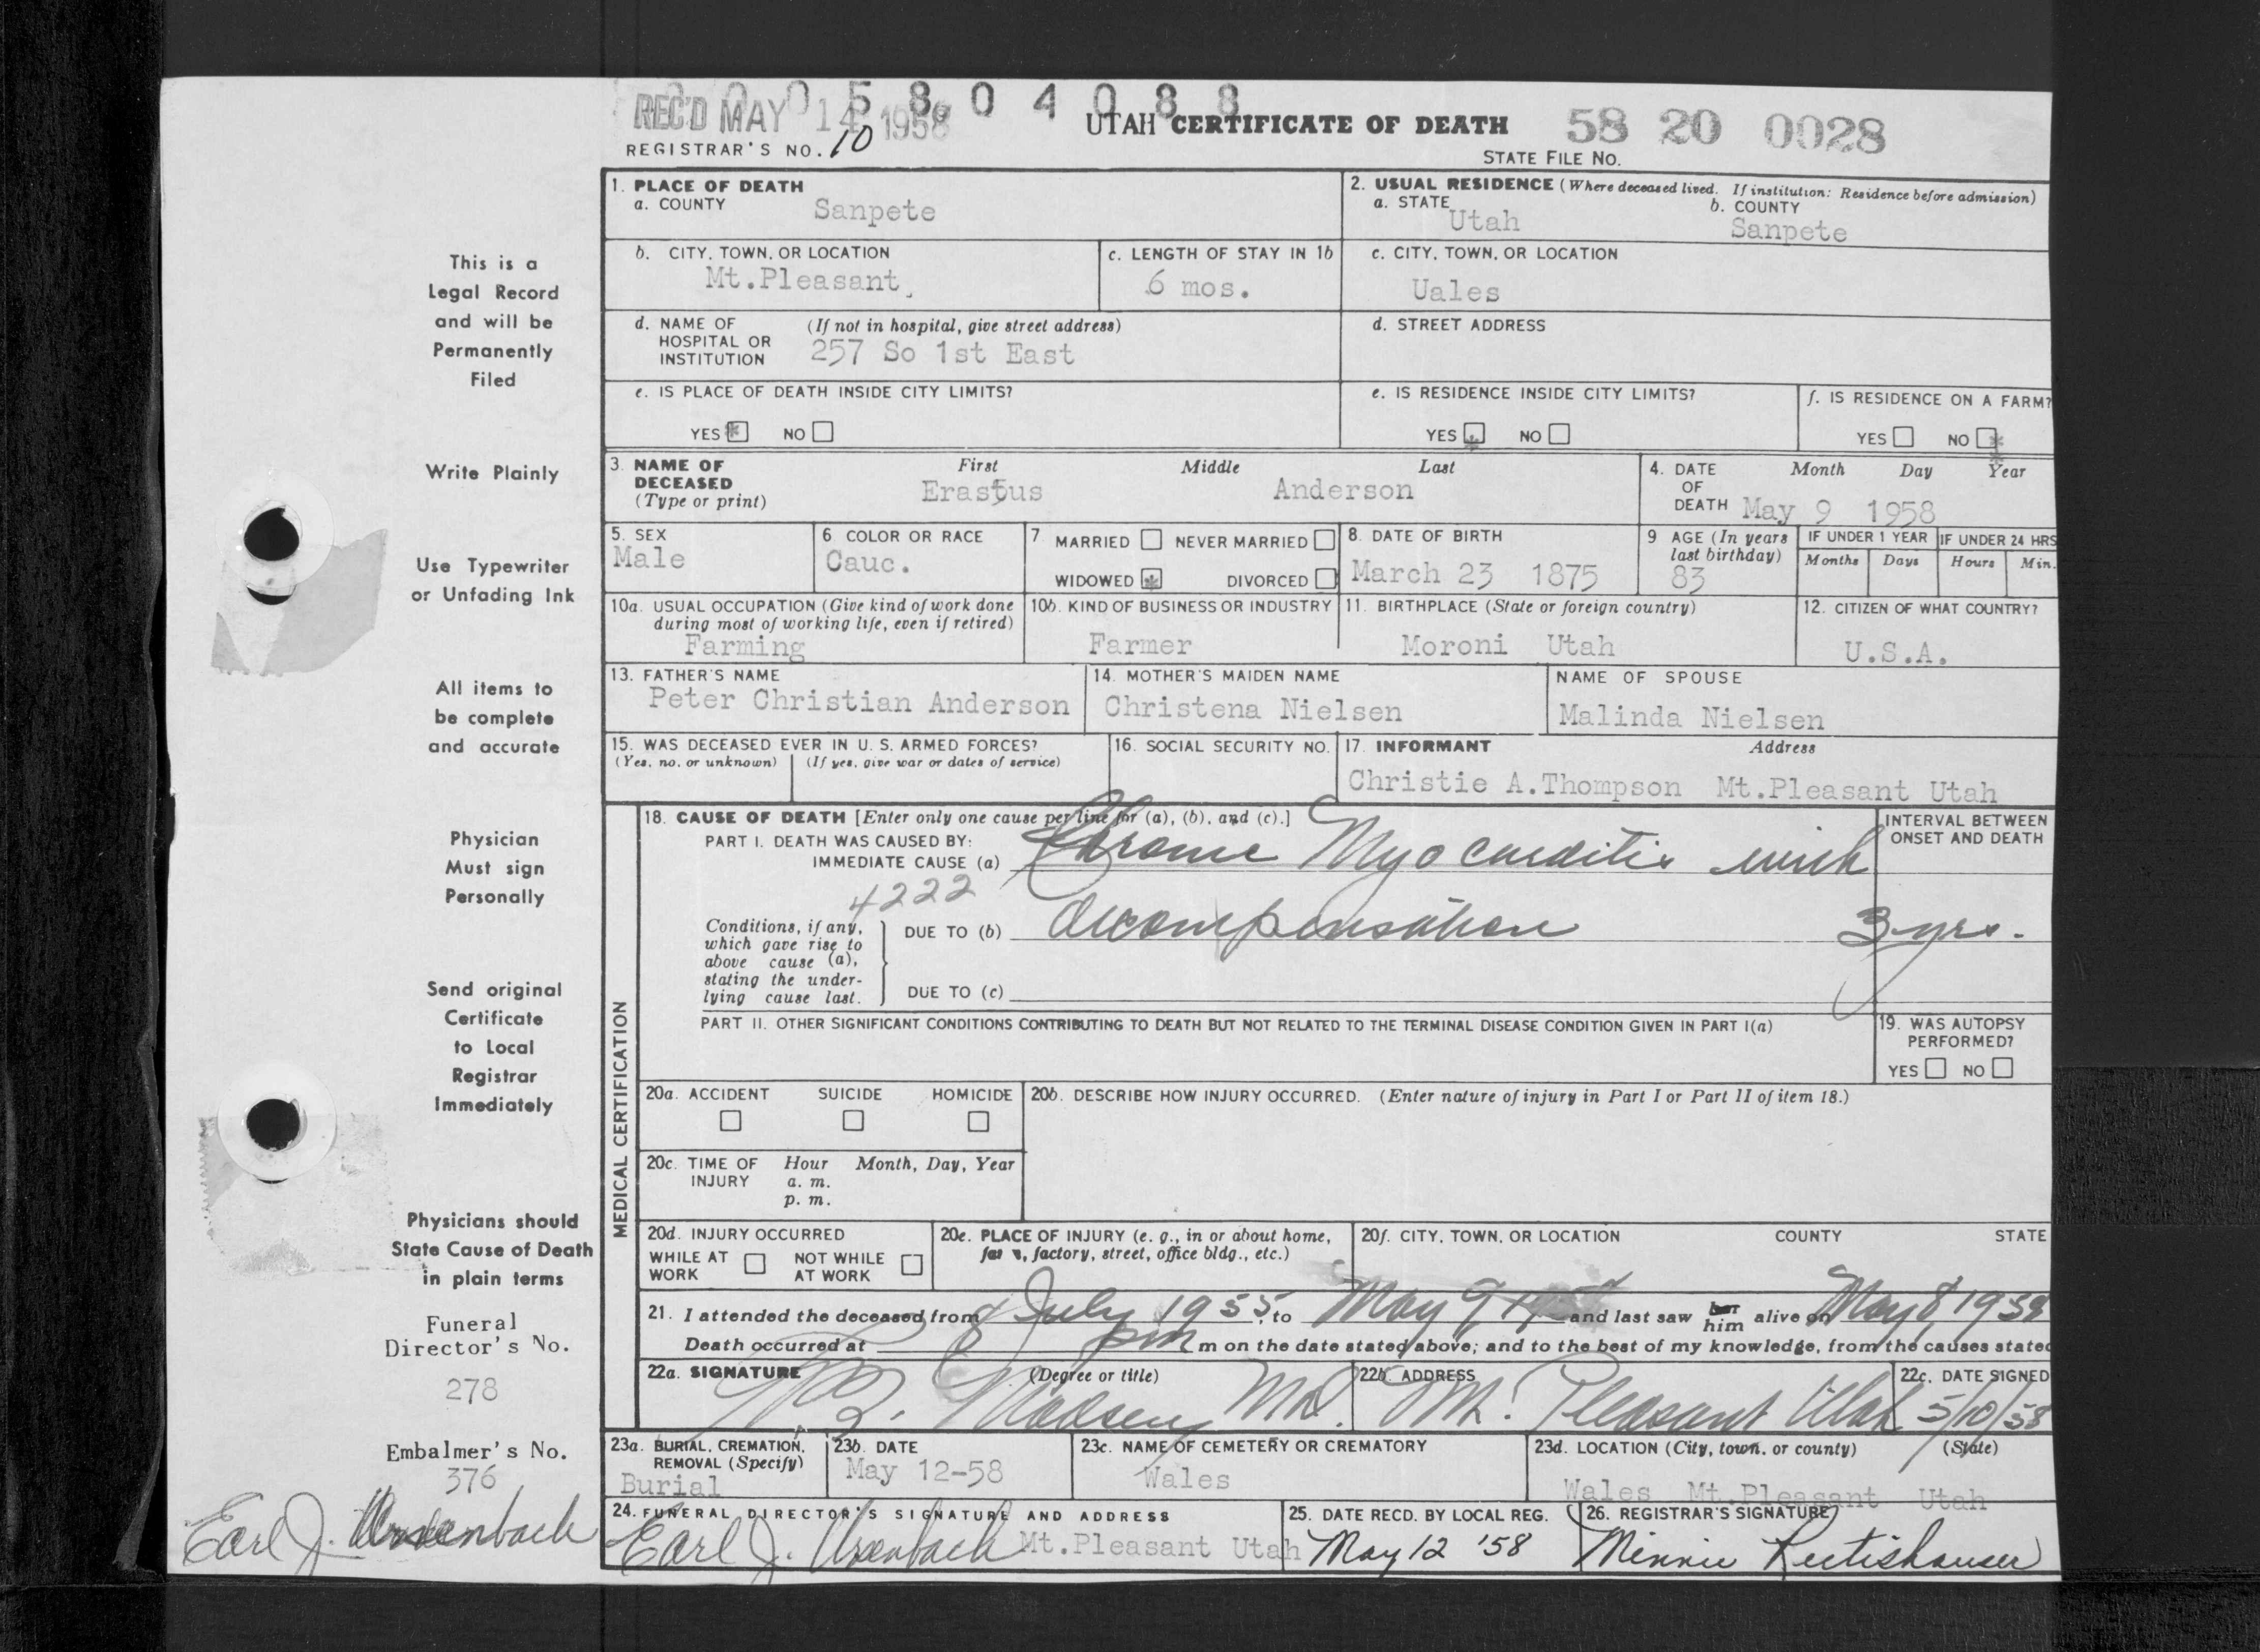 0 0 0 5 8 0 4 0 8 8
REC'D MAY 14 1958
UTAH CERTIFICATE OF DEATH
58 20 0028
REGISTRAR'S NO. 10
STATE FILE NO.
1. PLACE OF DEATH
a. COUNTY Sanpete
2. USUAL RESIDENCE (Where deceased lived. If institution: Residence before admission)
a. STATE Utah b. COUNTY Sanpete
b. CITY, TOWN, OR LOCATION Mt.Pleasant,
c. LENGTH OF STAY IN 1b 6 mos.
c. CITY, TOWN, OR LOCATION Uales
d. NAME OF HOSPITAL OR INSTITUTION (If not in hospital, give street address)
257 So 1st East
d. STREET ADDRESS
e. IS PLACE OF DEATH INSIDE CITY LIMITS?
YES NO
e. IS RESIDENCE INSIDE CITY LIMITS?
YES NO
f. IS RESIDENCE ON A FARM?
YES NO
3. NAME OF DECEASED (Type or print)
First Middle Last
Erastus Anderson
4. DATE OF DEATH Month Day Year
May 9 1958
5. SEX
Male
6 COLOR OR RACE
Cauc.
7 MARRIED NEVER MARRIED
WIDOWED DIVORCED
8. DATE OF BIRTH
March 23 1875
9 AGE (In years last birthday)
83
IF UNDER 1 YEAR IF UNDER 24 HRS
Months Days Hours Min.
10a. USUAL OCCUPATION (Give kind of work done during most of working life, even if retired)
Farming
10b. KIND OF BUSINESS OR INDUSTRY
Farmer
11. BIRTHPLACE (State or foreign country)
Moroni Utah
12. CITIZEN OF WHAT COUNTRY?
U.S.A.
13. FATHER'S NAME
Peter Christian Anderson
14. MOTHER'S MAIDEN NAME
Christena Nielsen
NAME OF SPOUSE
Malinda Nielsen
15. WAS DECEASED EVER IN U. S. ARMED FORCES?
(Yes, no, or unknown) (If yes, give war or dates of service)
16. SOCIAL SECURITY NO.
17. INFORMANT Address
Christie A.Thompson Mt.Pleasant Utah
MEDICAL CERTIFICATION
18. CAUSE OF DEATH [Enter only one cause per line for (a), (b), and (c).]
PART I. DEATH WAS CAUSED BY:
IMMEDIATE CAUSE (a) Chronic Myocarditis with
INTERVAL BETWEEN ONSET AND DEATH
4222
Conditions, if any, which gave rise to above cause (a), stating the underlying cause last.
DUE TO (b) decompensation 3 yrs.
DUE TO (c)
PART II. OTHER SIGNIFICANT CONDITIONS CONTRIBUTING TO DEATH BUT NOT RELATED TO THE TERMINAL DISEASE CONDITION GIVEN IN PART I(a)
19. WAS AUTOPSY PERFORMED?
YES NO
20a. ACCIDENT SUICIDE HOMICIDE
20b. DESCRIBE HOW INJURY OCCURRED. (Enter nature of injury in Part I or Part II of item 18.)
20c. TIME OF INJURY Hour Month, Day, Year
a. m.
p. m.
20d. INJURY OCCURRED
WHILE AT WORK NOT WHILE AT WORK
20e. PLACE OF INJURY (e. g., in or about home, farm, factory, street, office bldg., etc.)
20f. CITY, TOWN, OR LOCATION COUNTY STATE
21. I attended the deceased from July 1955, to May 9 1958 and last saw her him alive on May 8, 1958
Death occurred at 8 pm m on the date stated above; and to the best of my knowledge, from the causes stated
22a. SIGNATURE (Degree or title)
Madsen MD.
22b. ADDRESS
Mt. Pleasant Utah
22c. DATE SIGNED
5/10/58
23a. BURIAL, CREMATION, REMOVAL (Specify)
Burial
23b. DATE
May 12-58
23c. NAME OF CEMETERY OR CREMATORY
Wales
23d. LOCATION (City, town, or county) (State)
Wales Mt.Pleasant Utah
24. FUNERAL DIRECTOR'S SIGNATURE AND ADDRESS
Earl J. Ursenbach Mt.Pleasant Utah
25. DATE RECD. BY LOCAL REG.
May 12 '58
26. REGISTRAR'S SIGNATURE
Minnie Rutishauser
This is a
Legal Record
and will be
Permanently
Filed
Write Plainly
Use Typewriter
or Unfading Ink
All items to
be complete
and accurate
Physician
Must sign
Personally
Send original
Certificate
to Local
Registrar
Immediately
Physicians should
State Cause of Death
in plain terms
Funeral
Director's No.
278
Embalmer's No.
376
Earl J. Ursenbach